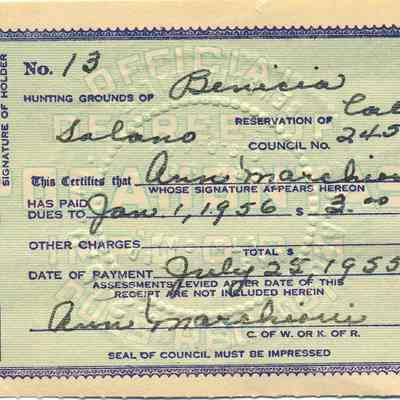 SIGNATURE OF HOLDER
No. 13
OFFICIAL
HUNTING GROUNDS OF Benicia
DEGREE OF
RESERVATION OF Cal
Solano COUNCIL No. 245
This Certifies that Ann Marchioni
WHOSE SIGNATURE APPEARS HEREON
HAS PAID
DUES TO Jan 1, 1956 $ 3.00
OTHER CHARGES
TOTAL $
DATE OF PAYMENT July 25, 1955
ASSESSMENTS LEVIED AFTER DATE OF THIS
RECEIPT ARE NOT INCLUDED HEREIN
Ann Marchioni
C. OF W. OR K. OF R.
SEAL OF COUNCIL MUST BE IMPRESSED